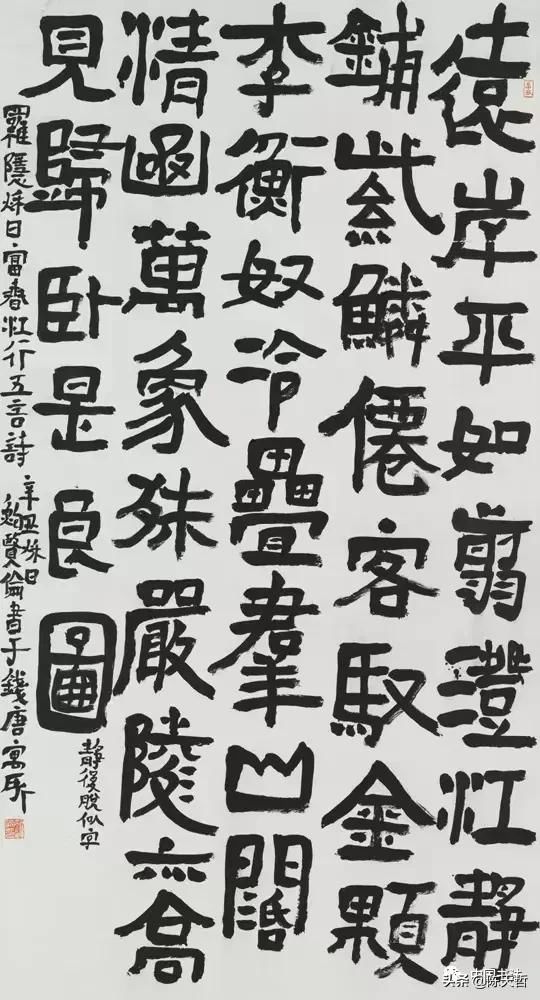 遠岸平如剪澄江靜
鋪紫鱗僊客馭金顆
李衡奴冷疊羣山闊
清函萬象殊嚴陵亦高
見歸卧是良圖
靜後脫似字
羅隱秋日富春江行五言詩
辛丑秋日
鮑賢倫書于錢唐寓所
中国书法
头条 @陈天哲